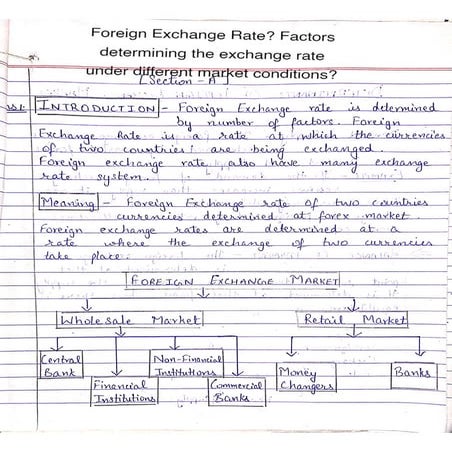 Foreign Exchange Rate? Factors
determining the exchange rate
under different market conditions?
[Section - A]
INTRODUCTION - Foreign Exchange rate is determined
by number of factors. Foreign
Exchange Rate is a rate at which the currencies
of two countries are being exchanged.
Foreign exchange rate also have many exchange
rate system.
Meaning - Foreign Exchange rate of two countries
currencies determined at forex market.
Foreign exchange rates are determined at a
rate where the exchange of two currencies
take place.
FOREIGN EXCHANGE MARKET
Wholesale Market Retail Market
Central Bank Non-Financial Institutions Money Changers Banks
Financial Institutions Commercial Banks